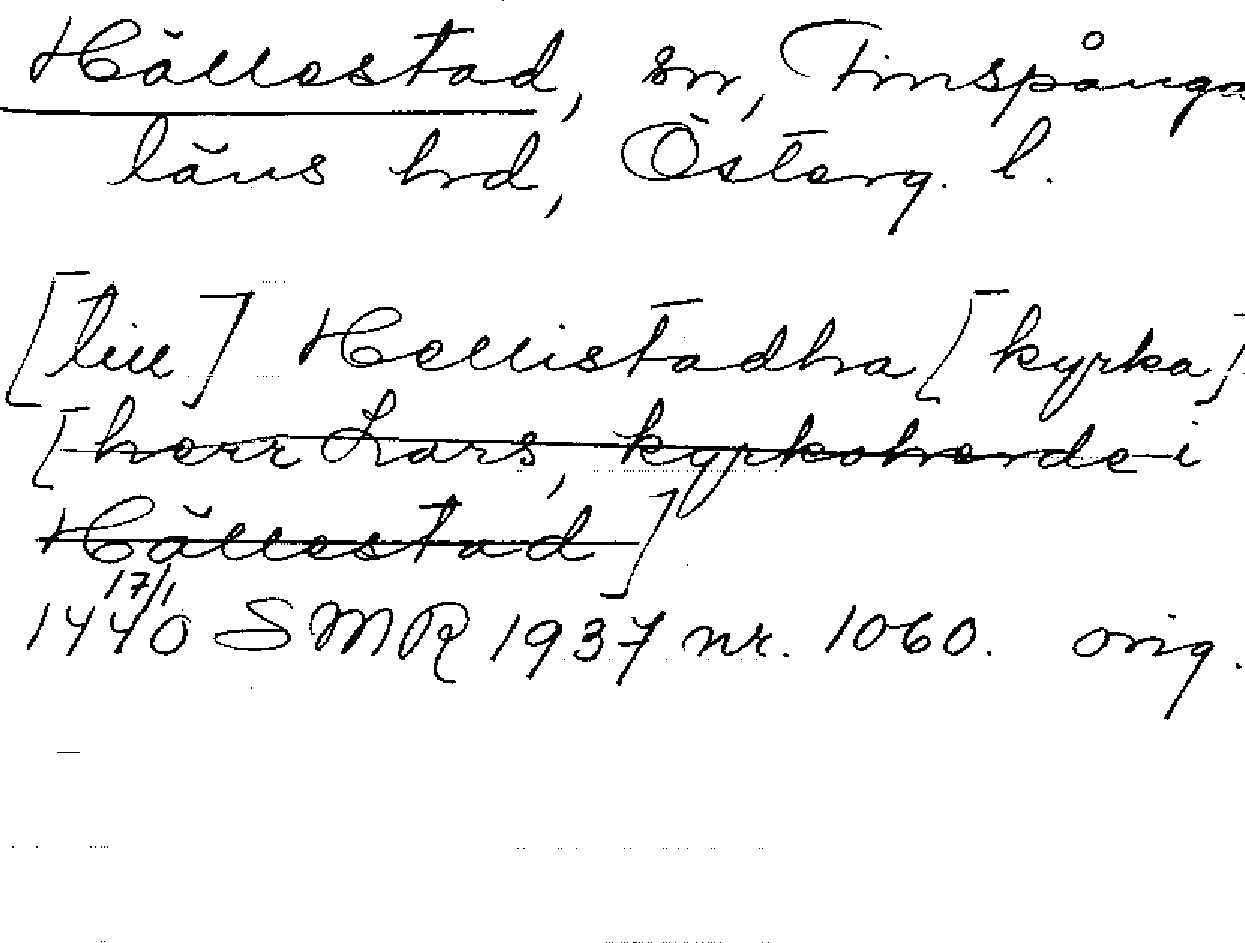 Hällestad, sn, Finspånga
läns hrd, Österg. l.
[till] Hellistadha [kyrka]
[herr Lars, kyrkoherde i
Hällestad]
17/1
1440 SMR 1937 nr. 1060. orig.